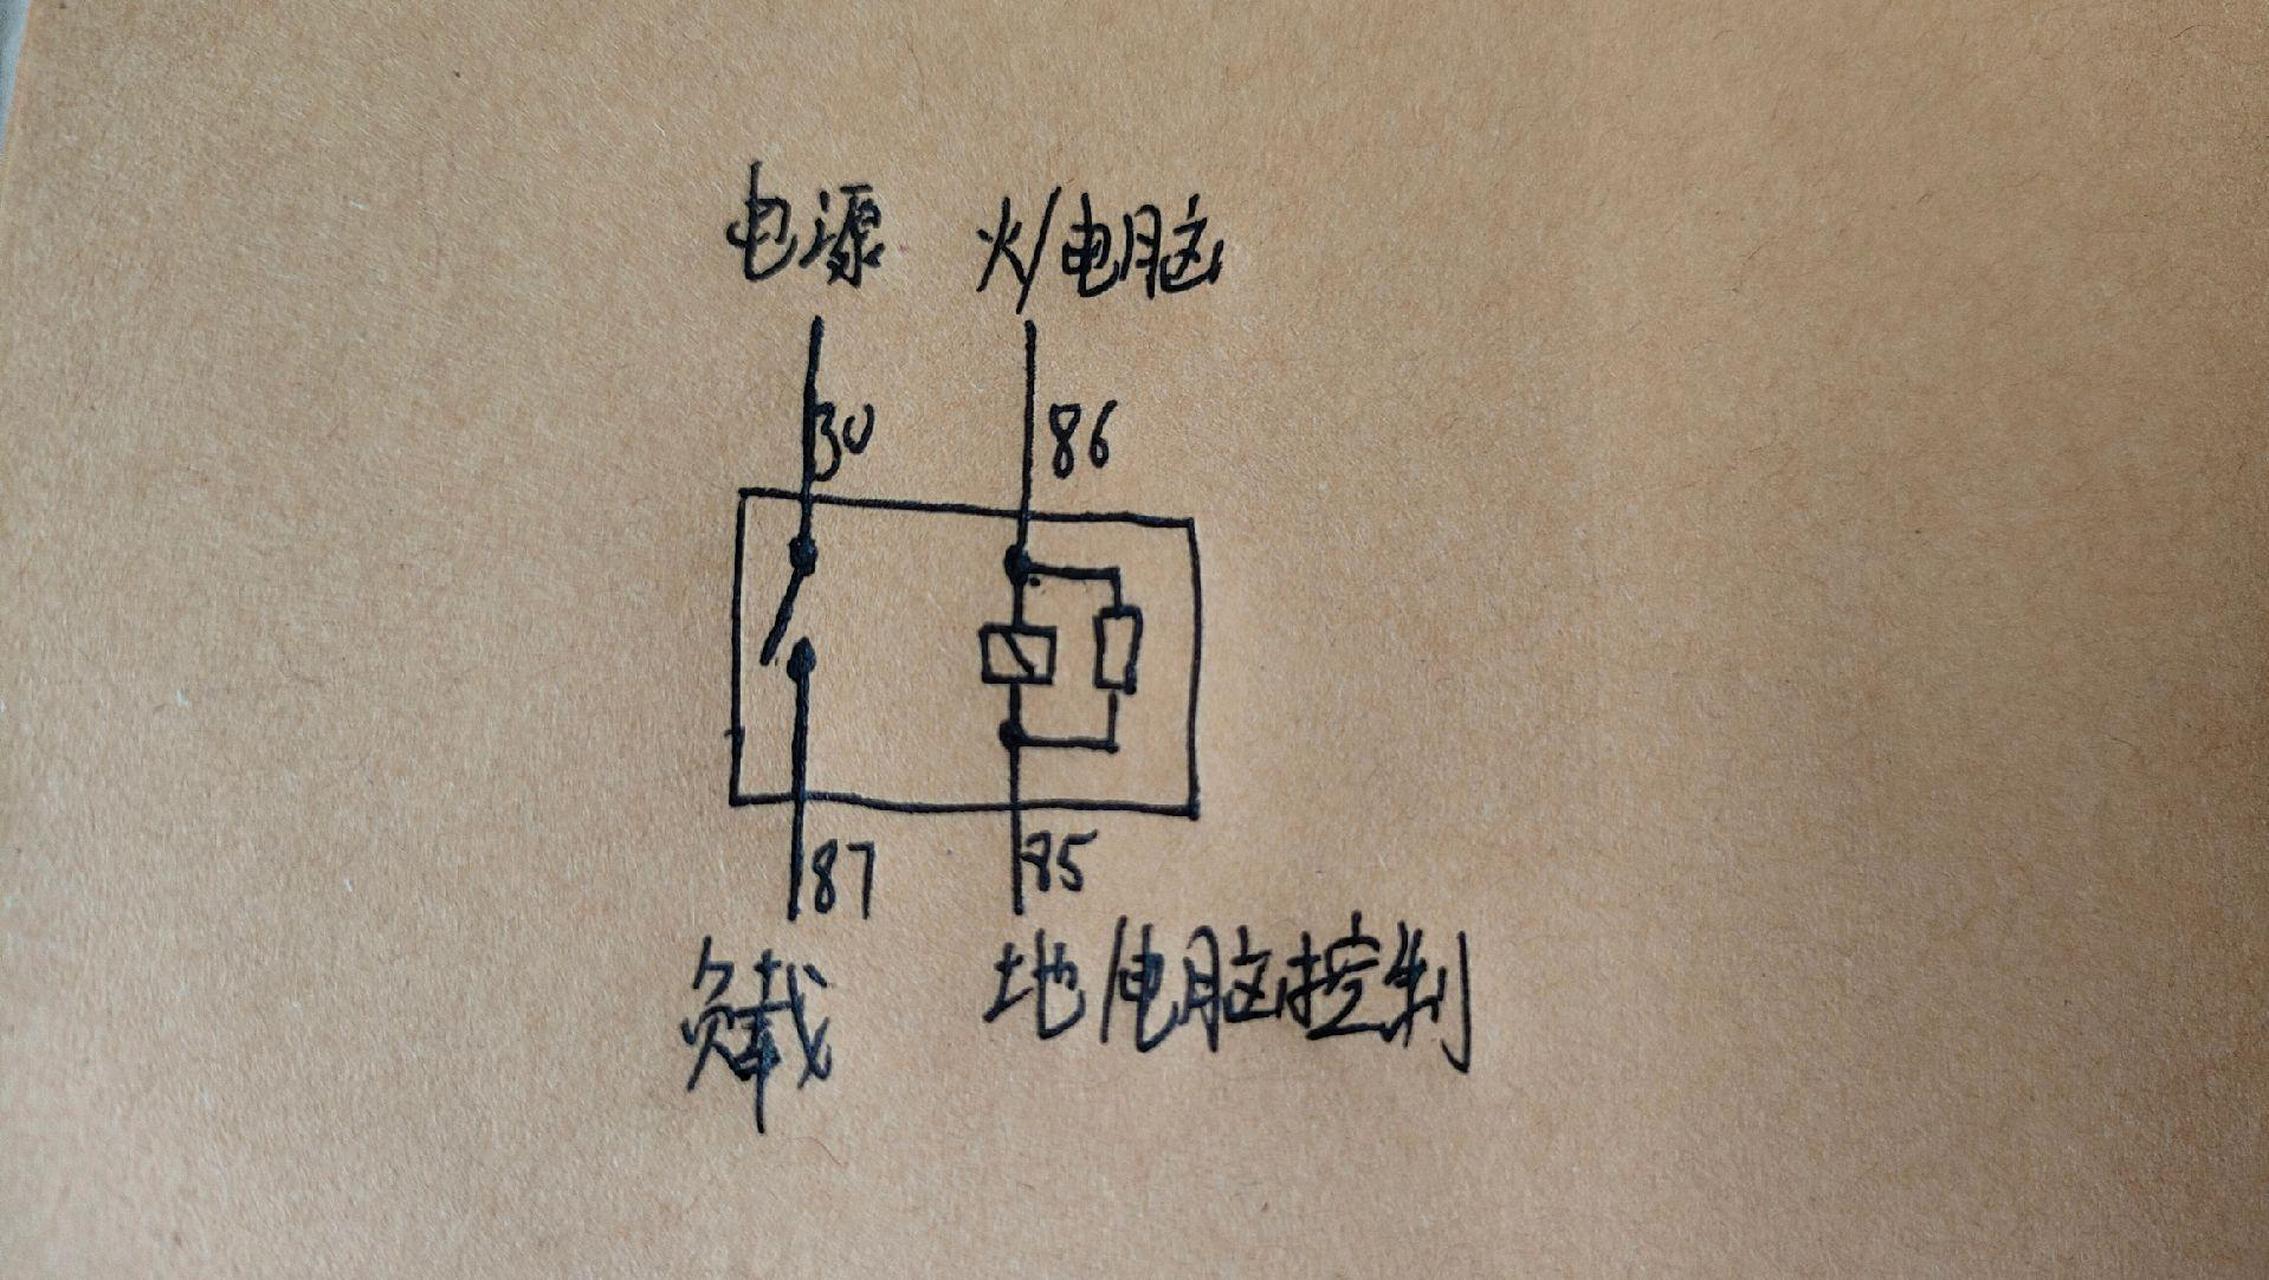 电源 火/电脑
30 86
87 85
负载 地/电脑控制